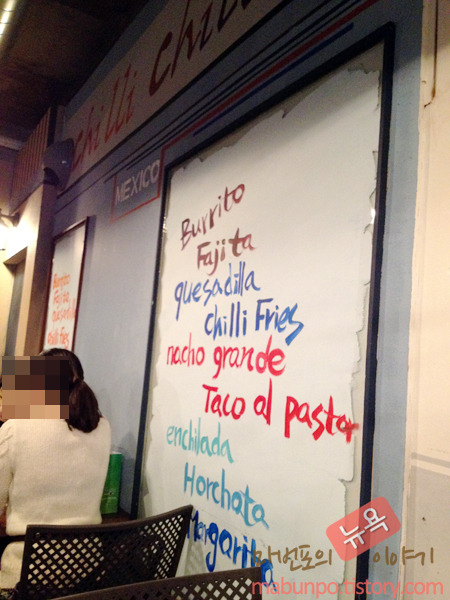 chilli chilli
MEXICO
Burrito
Fajita
quesadilla
chilli Fries
nacho grande
Taco al pastor
enchilada
Horchata
Margarita
Burrito
Fajita
quesadilla
chilli fries
마번포의 뉴욕 이야기
mabunpo.tistory.com